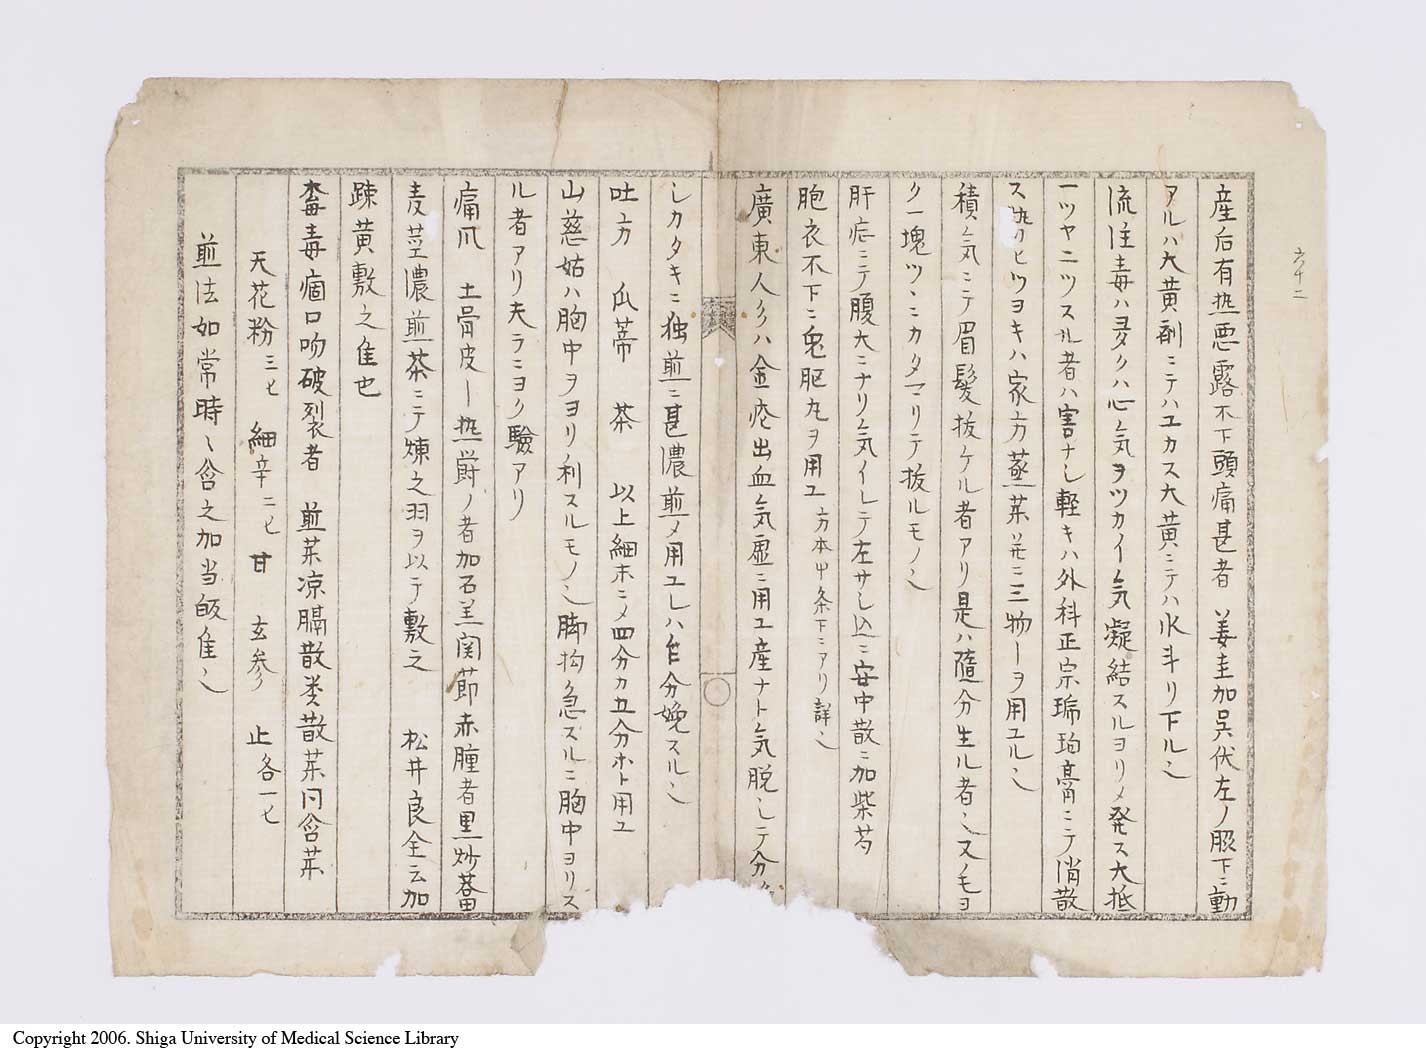 六十二
産后有热悪露不下頭痛甚者 姜圭加呉伏左ノ股下ニ動
アルハ大黄剤ニテハユカス大黄ニテハ水斗リ下ル也
流注毒ハ多クハ心気ヲツカイ気凝結スルヲヨリメ発ス大抵
一ツヤニツスル者ハ害ナし軽キハ外科正宗琥珀膏ニテ消散
ス 热ヒツヨキハ家方蒸薬 ニ三物ーヲ用ユル也
積気ニテ眉髪抜ケル者アリ是ハ随分生ル者也又ノモヨ
ク一塊ツヽニカタマリテ抜ルモノ也
肝症ニテ腹大ニナリ気イレテ左サし込ニ安中散ニ加柴芍
胞衣不下ニ兎胆丸ヲ用ユ方本中条下ニアリ詳也
廣東人参ハ金瘡出血気虚ニ用ユ産ナト気脱しテ分
しカタキニ独煎ニ甚濃煎メ用ユレハ乍分娩スル也
吐方 瓜蒂 茶 以上細末ニメ四分カ五分ホト用ユ
山慈姑ハ胸中ヲヨリ利スルモノ也脚拘急スルニ胸中ヲリス
ル者アリ夫ラニヨク驗アリ
痛爪 土骨皮ー热欝ノ者加石羔関節赤腫者黒炒蕃
麦荳濃煎茶ニテ煉之羽ヲ以テ敷之 松井良全云加
踈黄敷之隹也
黴毒痼口吻破裂者 煎薬凉膈散类散薬冂含薬
天花粉三匕 細辛二匕 甘 玄参 止各一匕
煎法如常時〻含之加当皈隹也
Copyright 2006. Shiga University of Medical Science Library